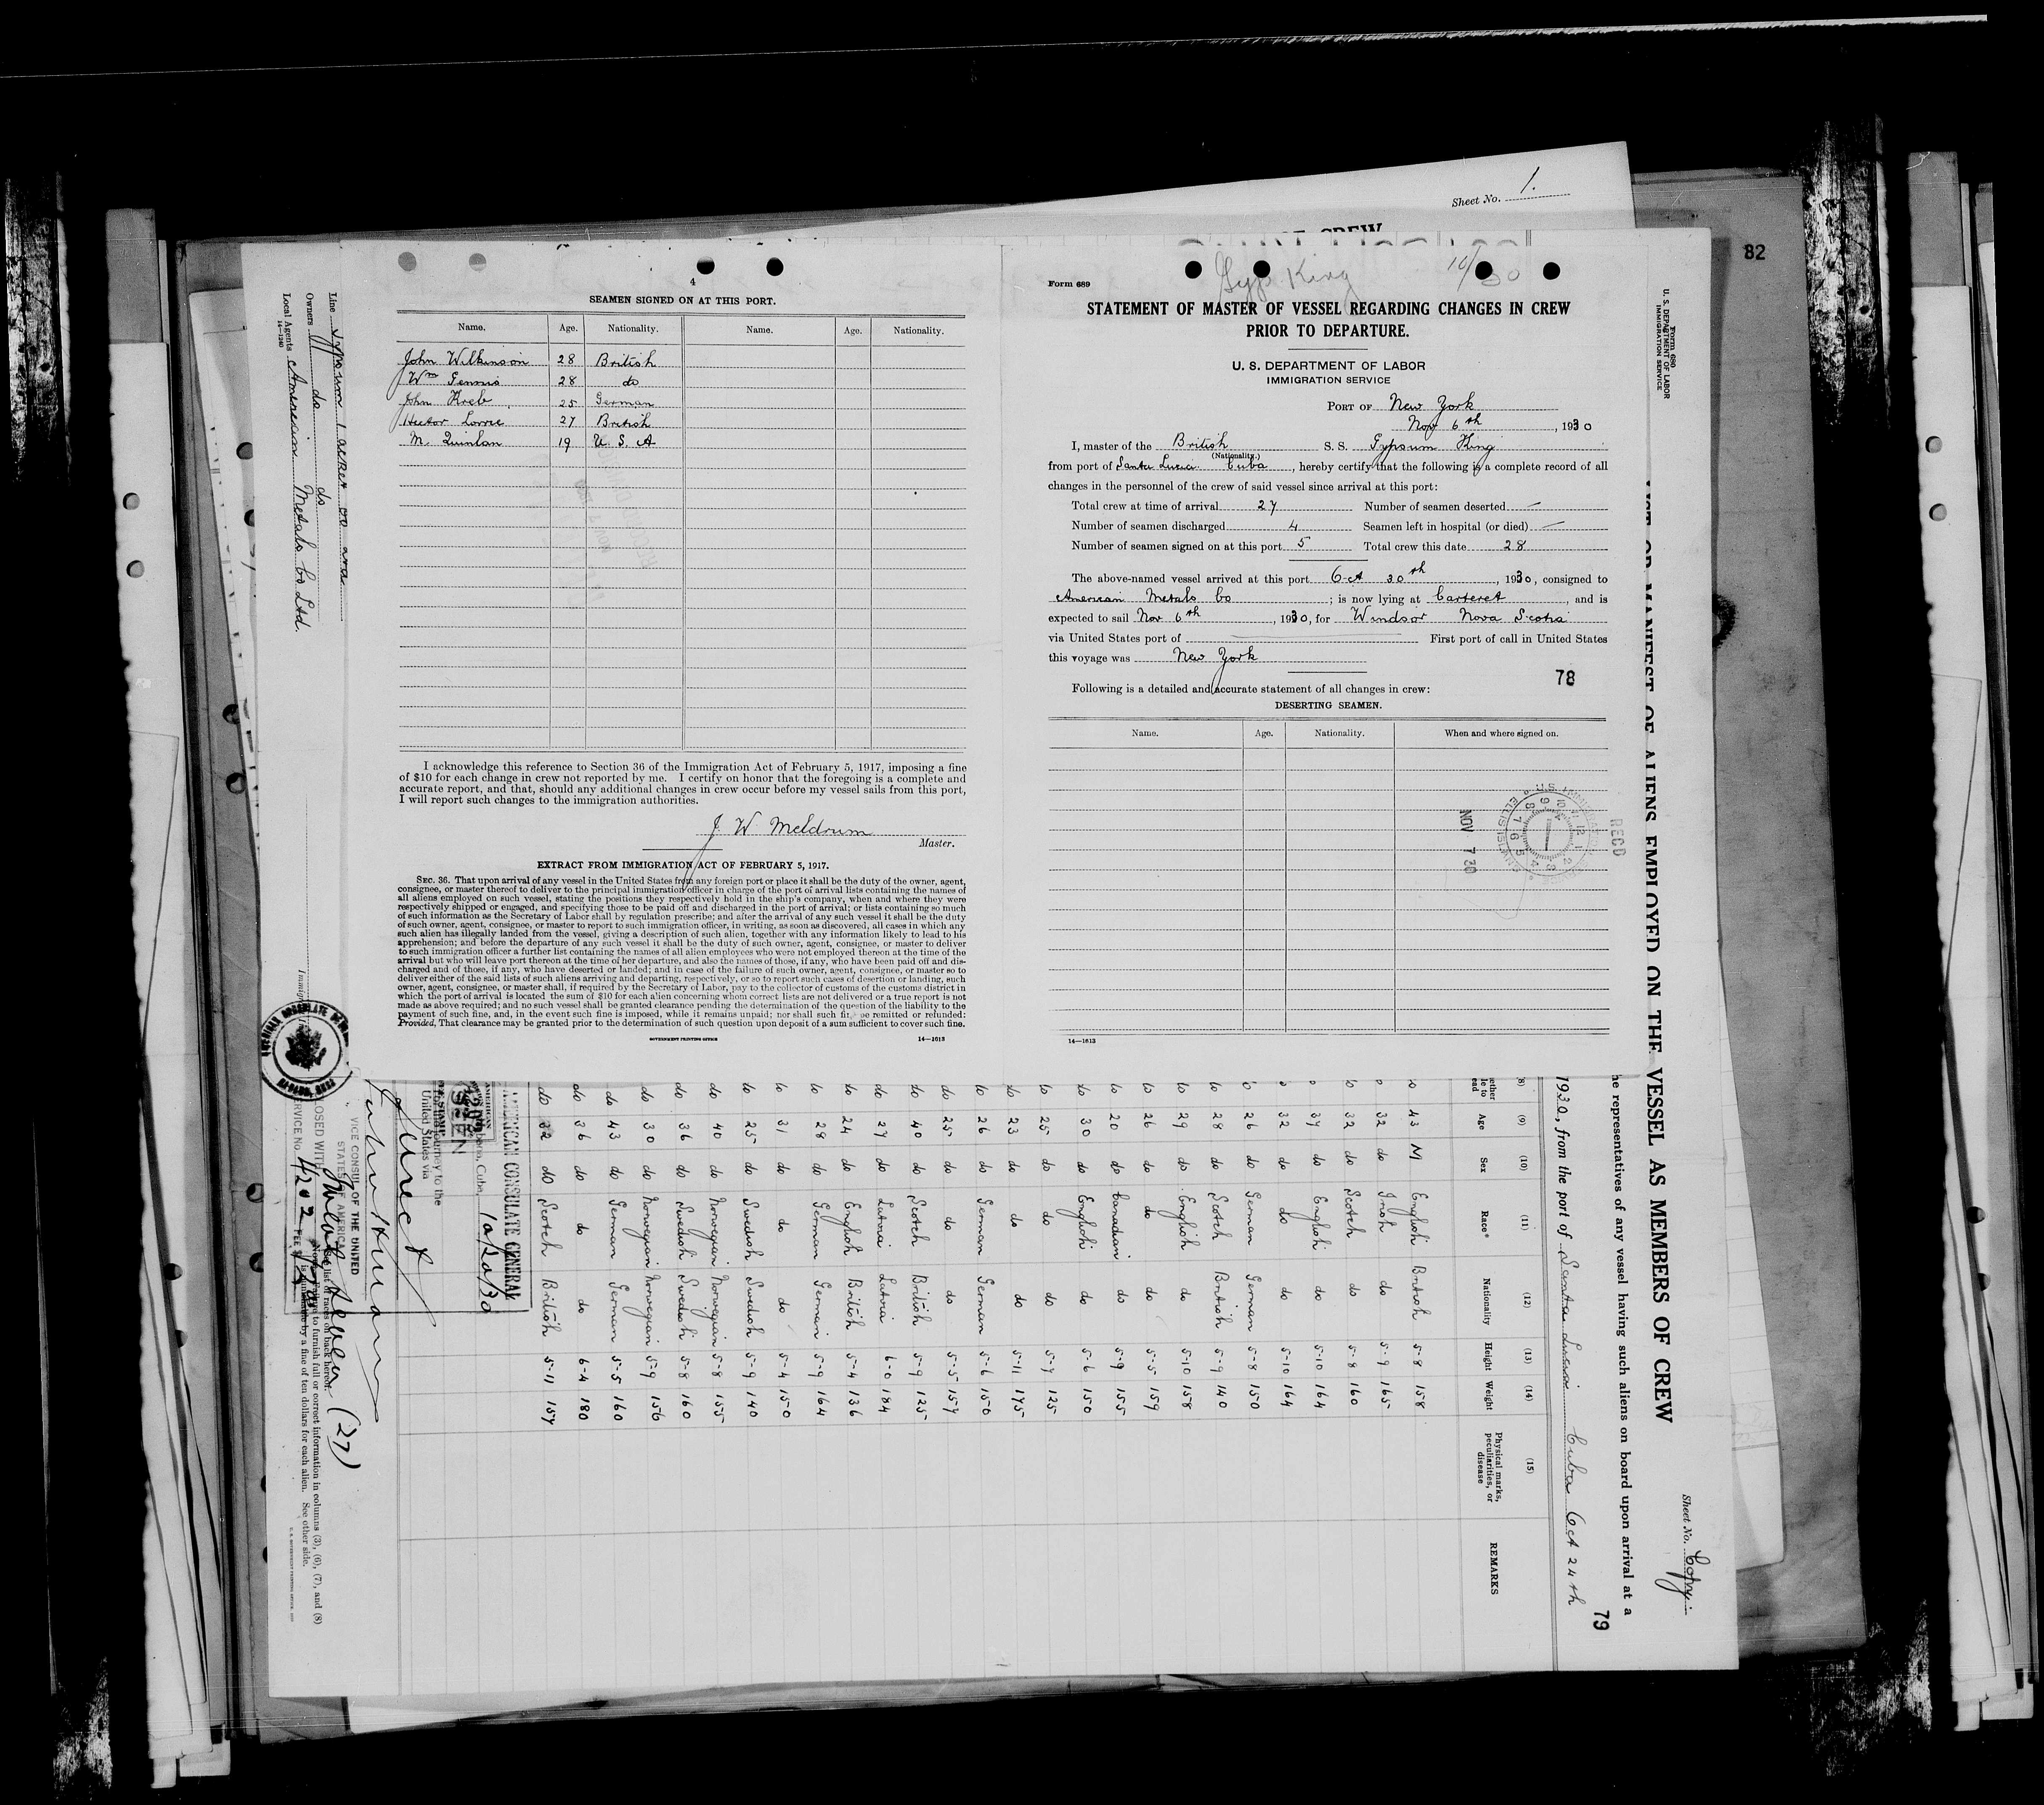 Sheet No. 1.
82
4
SEAMEN SIGNED ON AT THIS PORT.
Name. Age. Nationality. Name. Age. Nationality.
John Wilkinson 28 British
Wm Gennis 28 do
John Kreb 25 German
Hector Lorrie 27 British
M. Quinlan 19 U. S. A
I acknowledge this reference to Section 36 of the Immigration Act of February 5, 1917, imposing a fine
of $10 for each change in crew not reported by me. I certify on honor that the foregoing is a complete and
accurate report, and that, should any additional changes in crew occur before my vessel sails from this port,
I will report such changes to the immigration authorities.
J. W. Meldrum
Master.
EXTRACT FROM IMMIGRATION ACT OF FEBRUARY 5, 1917.
SEC. 36. That upon arrival of any vessel in the United States from any foreign port or place it shall be the duty of the owner, agent,
consignee, or master thereof to deliver to the principal immigration officer in charge of the port of arrival lists containing the names of
all aliens employed on such vessel, stating the positions they respectively hold in the ship's company, when and where they were
respectively shipped or engaged, and specifying those to be paid off and discharged in the port of arrival; or lists containing so much
of such information as the Secretary of Labor shall by regulation prescribe; and after the arrival of any such vessel it shall be the duty
of such owner, agent, consignee, or master to report to such immigration officer, in writing, as soon as discovered, all cases in which any
such alien has illegally landed from the vessel, giving a description of such alien, together with any information likely to lead to his
apprehension; and before the departure of any such vessel it shall be the duty of such owner, agent, consignee, or master to deliver
to such immigration officer a further list containing the names of all alien employees who were not employed thereon at the time of the
arrival but who will leave port thereon at the time of her departure, and also the names of those, if any, who have been paid off and dis-
charged and of those, if any, who have deserted or landed; and in case of the failure of such owner, agent, consignee, or master so to
deliver either of the said lists of such aliens arriving and departing, respectively, or so to report such cases of desertion or landing, such
owner, agent, consignee, or master shall, if required by the Secretary of Labor, pay to the collector of customs of the customs district in
which the port of arrival is located the sum of $10 for each alien concerning whom correct lists are not delivered or a true report is not
made as above required; and no such vessel shall be granted clearance pending the determination of the question of the liability to the
payment of such fine, and, in the event such fine is imposed, while it remains unpaid; nor shall such fine be remitted or refunded:
Provided, That clearance may be granted prior to the determination of such question upon deposit of a sum sufficient to cover such fine.
GOVERNMENT PRINTING OFFICE 14—1613
Gyp King 10/30
Form 689
STATEMENT OF MASTER OF VESSEL REGARDING CHANGES IN CREW
PRIOR TO DEPARTURE.
U. S. DEPARTMENT OF LABOR
IMMIGRATION SERVICE
PORT OF New York
Nov 6th, 1930
I, master of the British S. S. Gypsum King
(Nationality.)
from port of Santa Lucia Cuba, hereby certify that the following is a complete record of all
changes in the personnel of the crew of said vessel since arrival at this port:
Total crew at time of arrival 27 Number of seamen deserted —
Number of seamen discharged 4 Seamen left in hospital (or died) —
Number of seamen signed on at this port 5 Total crew this date 28
The above-named vessel arrived at this port Oct 30th, 1930, consigned to
American Metals Co; is now lying at Carteret, and is
expected to sail Nov 6th, 1930, for Windsor Nova Scotia
via United States port of First port of call in United States
this voyage was New York
78
Following is a detailed and accurate statement of all changes in crew:
DESERTING SEAMEN.
Name. Age. Nationality. When and where signed on.
RECD
NOV 7 30
14—1613
Form 680
U. S. DEPARTMENT OF LABOR
IMMIGRATION SERVICE
Sheet No. Copy
MANIFEST OF ALIENS EMPLOYED ON THE VESSEL AS MEMBERS OF CREW
he representatives of any vessel having such aliens on board upon arrival at a
79
1930, from the port of Santa Lucia Cuba Oct 24th
(8) (9) (10) (11) (12) (13) (14) (15)
Age Sex Race* Nationality Height Weight Physical marks, peculiarities, or disease REMARKS
43 M English British 5-8 158
32 do Irish do 5-9 165
32 do Scotch do 5-8 160
37 do English do 5-10 164
32 do do do 5-10 164
26 do German German 5-8 150
28 do Scotch British 5-9 140
29 do English do 5-10 158
26 do do do 5-5 159
20 do Canadian do 5-9 155
30 do English do 5-6 150
25 do do do 5-7 125
23 do do do 5-11 175
26 do German German 5-6 150
25 do do do 5-5 157
40 do Scotch British 5-9 125
27 do Latvia Latvia 6-0 184
24 do English British 5-4 136
28 do German German 5-9 164
31 do do do 5-4 150
25 do Swedish Swedish 5-9 140
40 do Norwegian Norwegian 5-8 155
36 do Swedish Swedish 5-8 160
30 do Norwegian Norwegian 5-9 156
43 do German German 5-5 160
36 do do do 6-4 180
32 do Scotch British 5-11 157
AMERICAN CONSULATE GENERAL
Cuba, 10/20/30
SEEN
journey to the
United States via
Direct
VICE CONSUL OF THE UNITED
STATES OF AMERICA
(27)
SERVICE No. 4202
list of races on back hereof.
to furnish full or correct information in columns (3), (6), (7), and (8)
is punishable by a fine of ten dollars for each alien. See other side.
Line
Owners do do
Local Agents American Metals Co Ltd.
14—1240